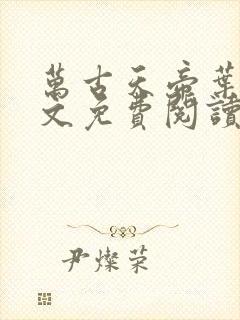 萬古天帝葉
文免費閱讀
尹燦榮